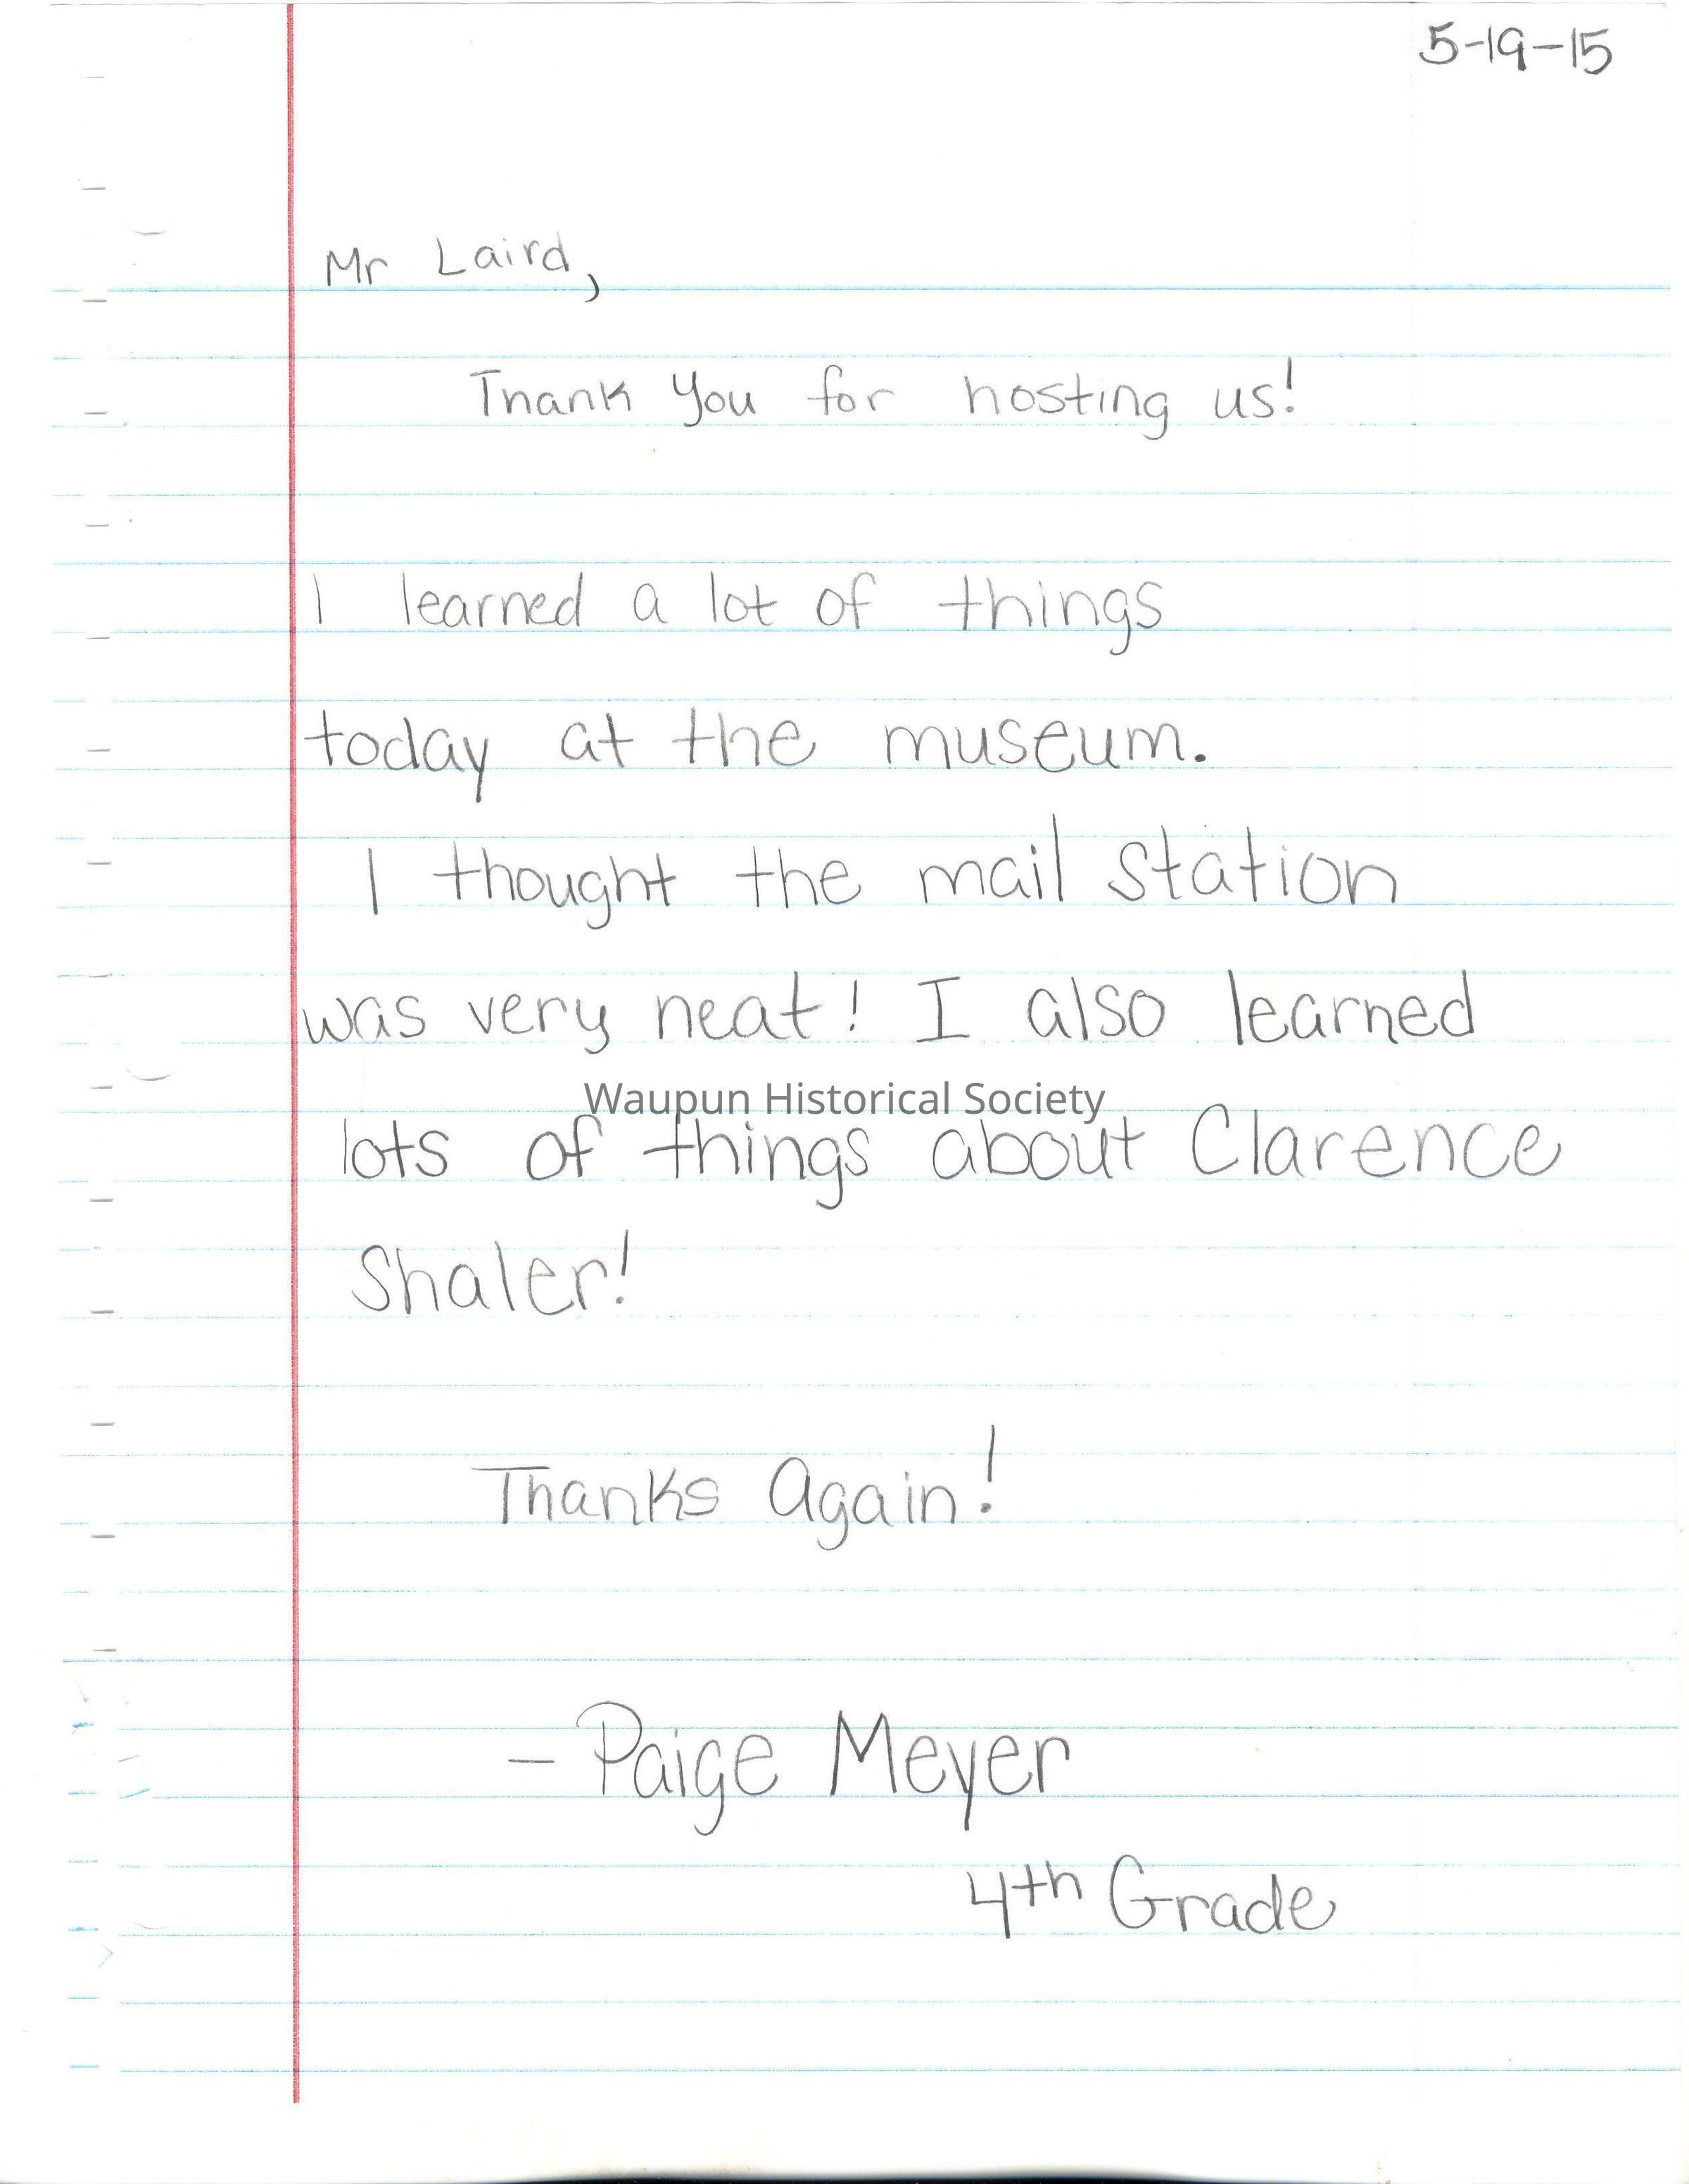 5-19-15
Mr Laird,
Thank you for hosting us!
I learned a lot of things
today at the museum.
I thought the mail station
was very neat! I also learned
Waupun Historical Society
lots of things about Clarence
Shaler!
Thanks Again!
- Paige Meyer
4th Grade